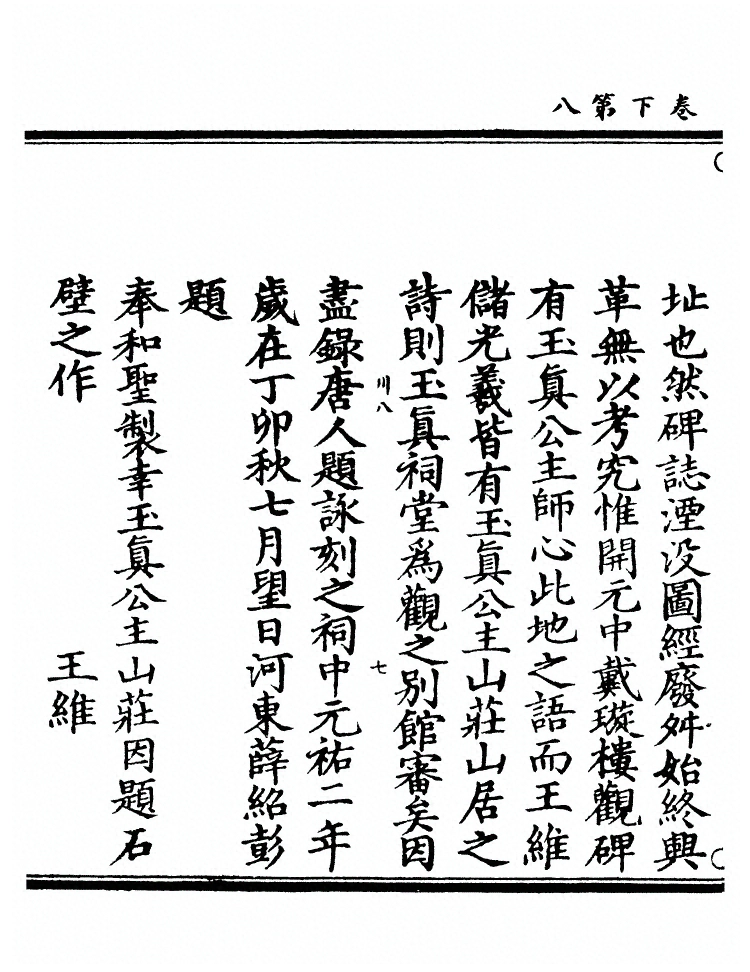 卷下第八
址也然碑誌湮没圖經廢舛始終興
革無以考究惟開元中戴璇樓觀碑
有玉真公主師心此地之語而王維
儲光羲皆有玉真公主山莊山居之
詩則玉真祠堂爲觀之别館審矣因
川八
七
盡錄唐人題詠刻之祠中元祐二年
歲在丁卯秋七月望日河東薛紹彭
題
奉和聖製幸玉真公主山莊因題石
壁之作
王維